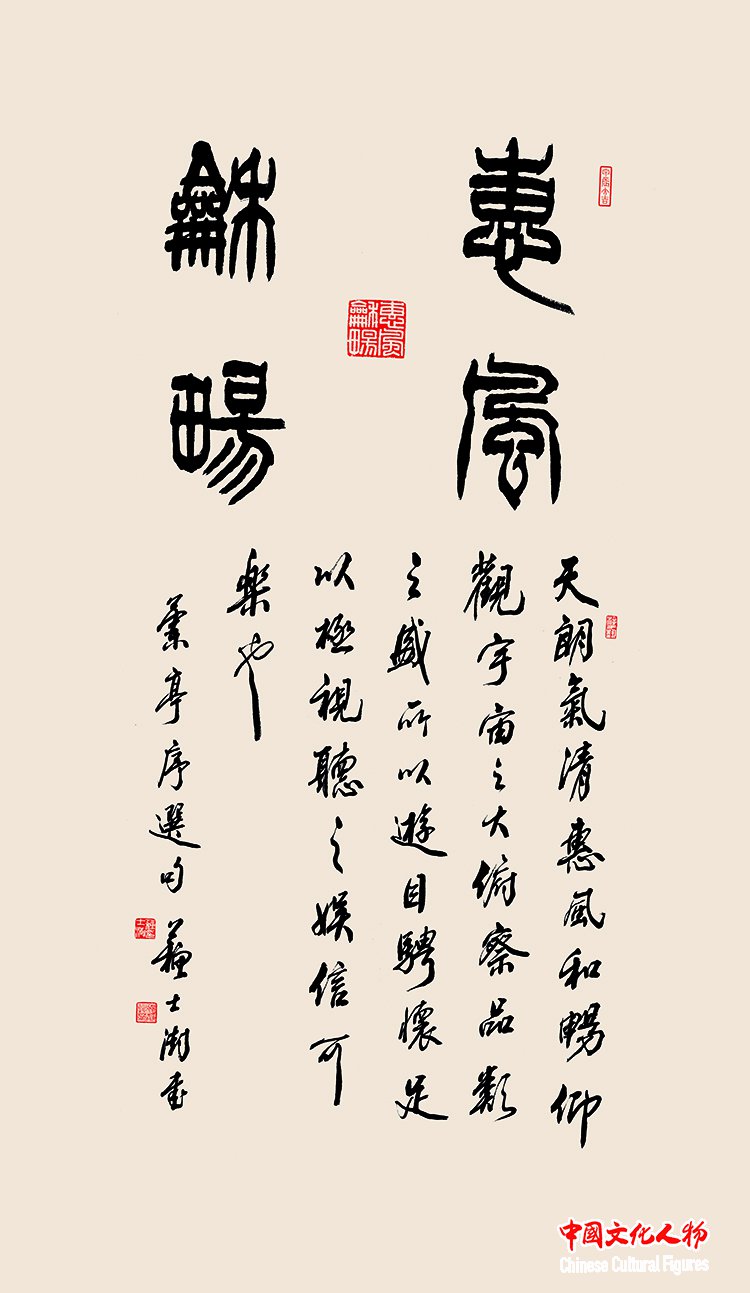 惠風
龢畼
惠風
龢畼
天朗氣清惠風和暢仰
觀宇宙之大俯察品類
之盛所以遊目騁懷足
以極視聽之娛信可
樂也
蘭亭序選句 蘇士澍書
中國文化人物
Chinese Cultural Figures